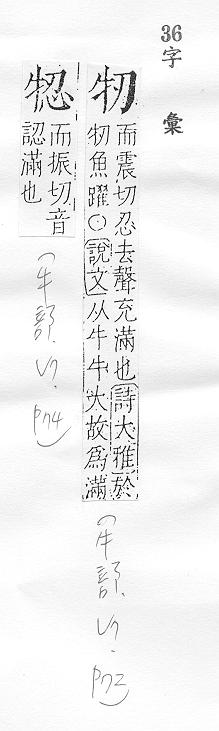 36
字彙
牣
而震切忍去聲充滿也詩大雅於
牣魚躍○說文从牛牛大故爲滿
(牛部 P72)
而振切音
認滿也
(牛部 P74)